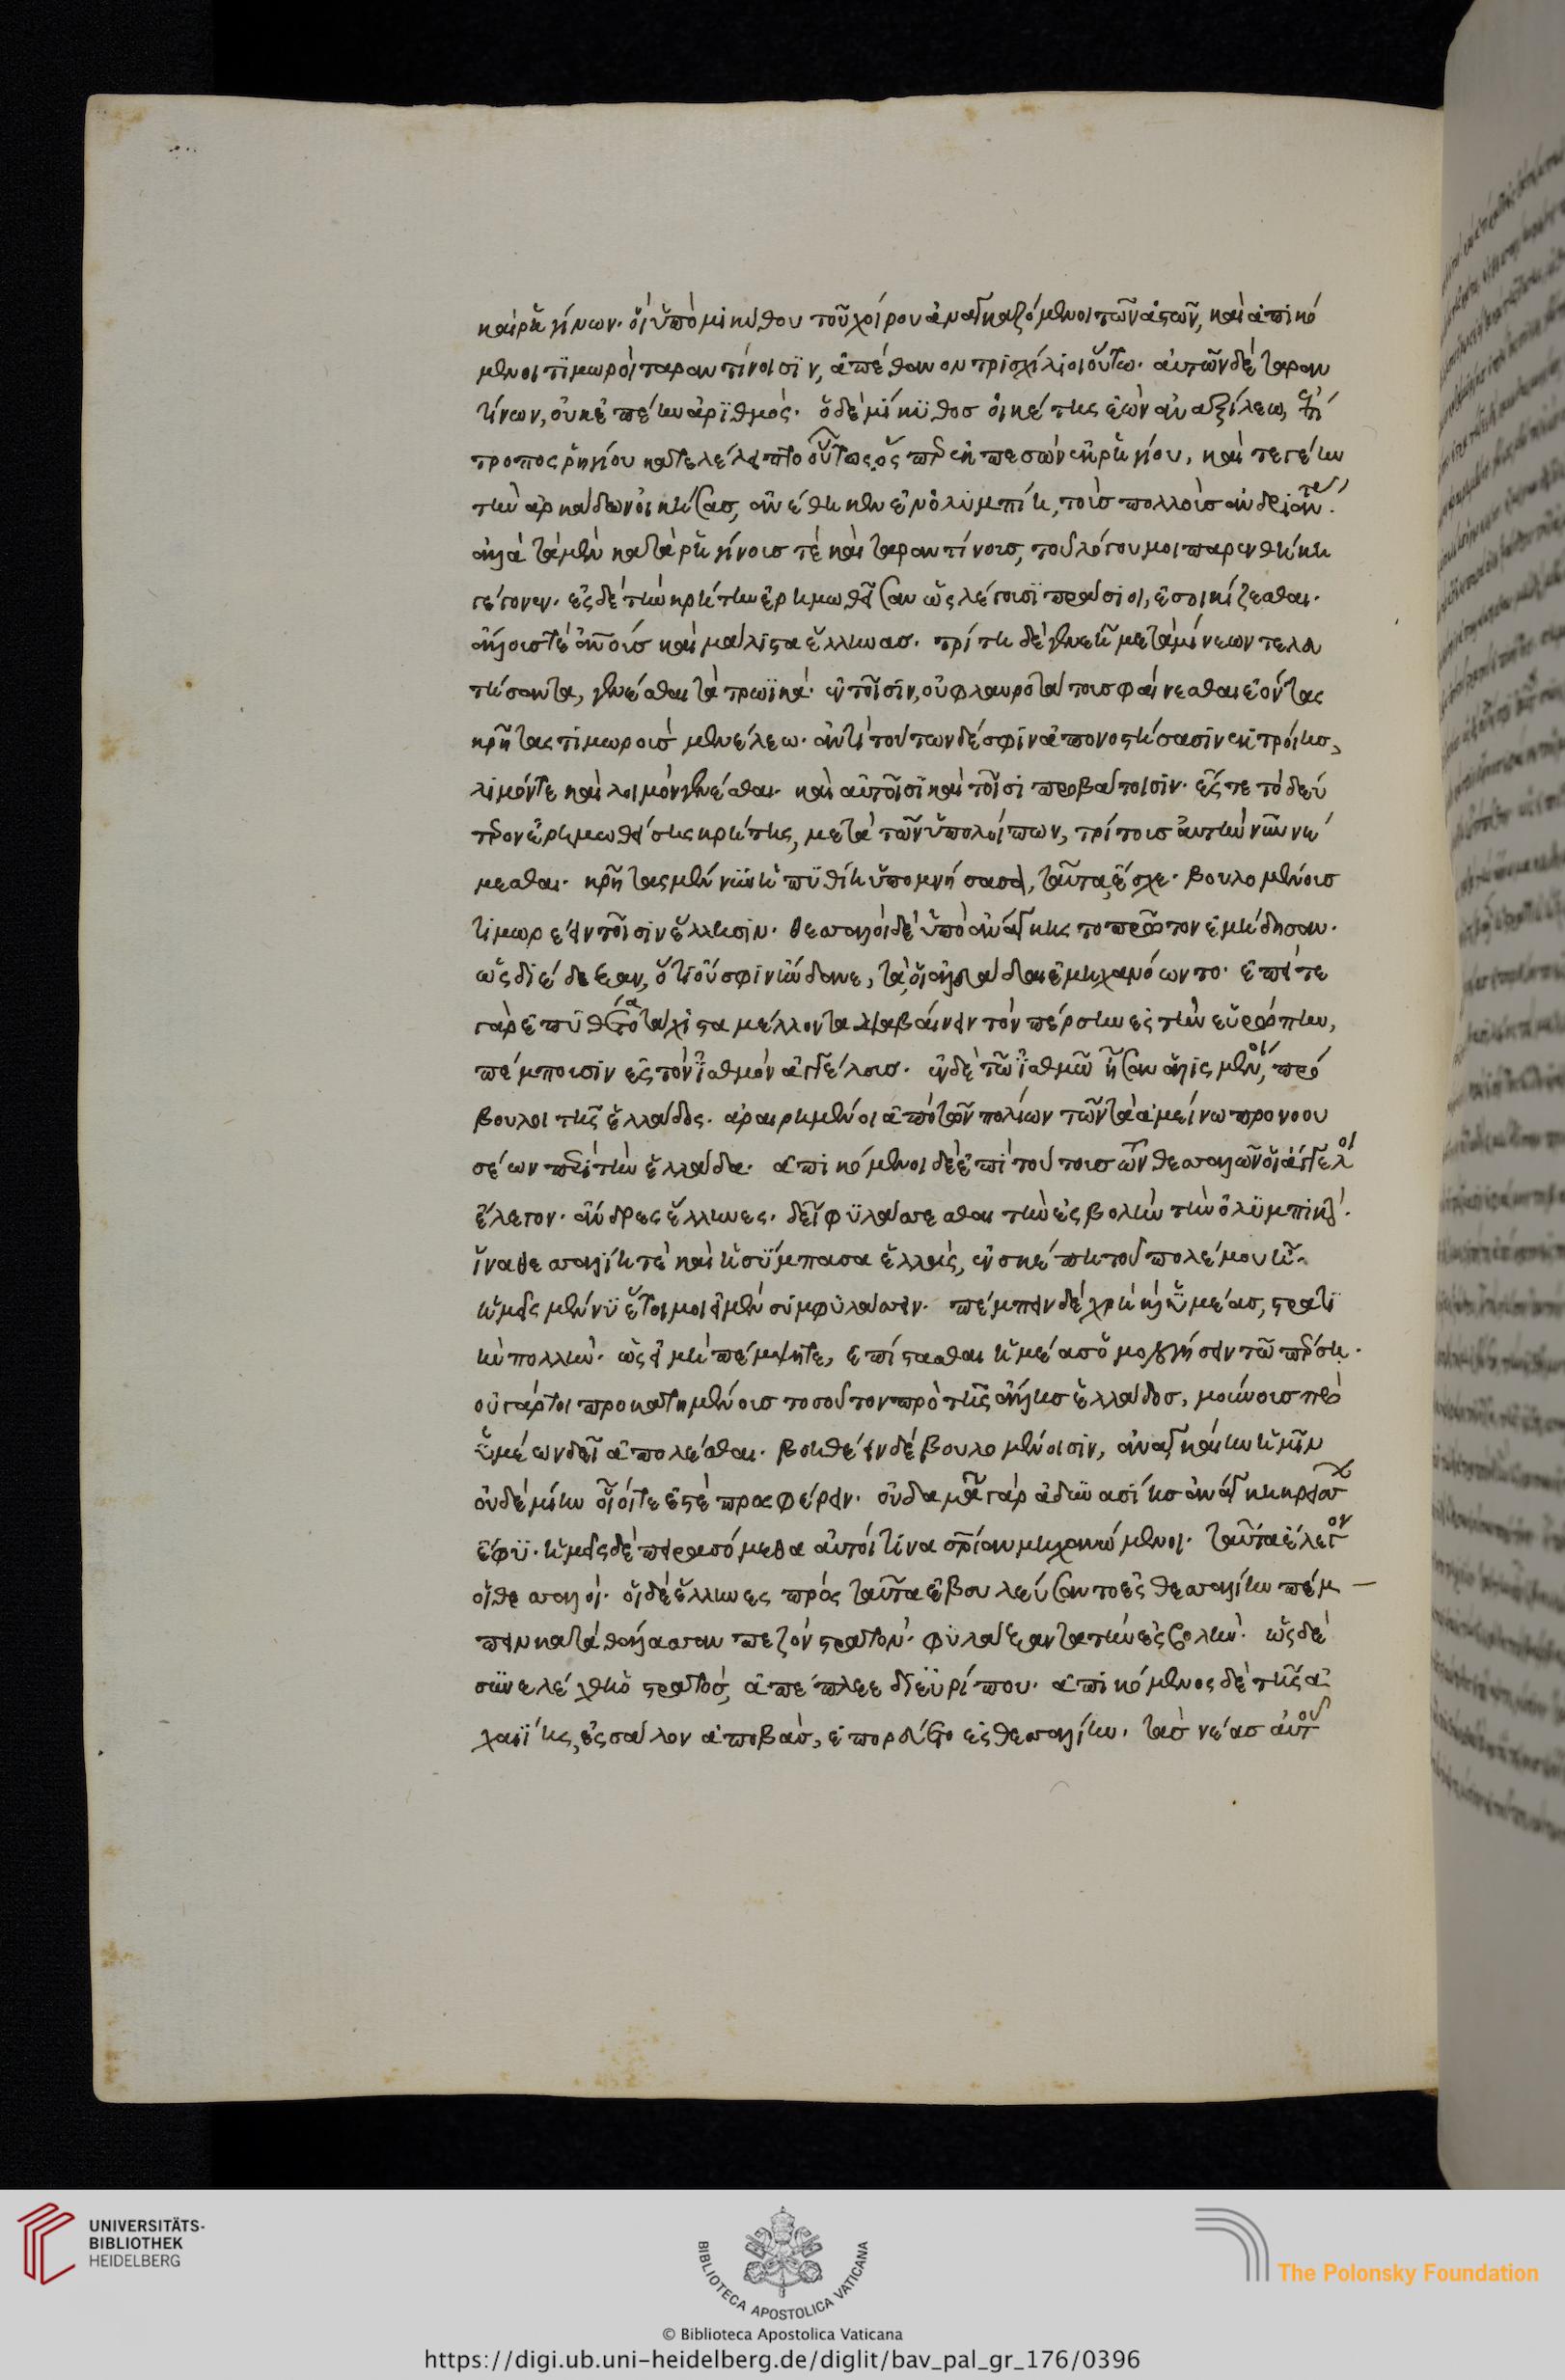 καὶ ῥηγίνων· οἳ ὑπὸ μικύθου τοῦ χοίρου ἀναγκαζόμενοι τῶν ἀστῶν, καὶ ἀπικό
μενοι τιμωροὶ ταραντίνοισιν, ἀπέθανον τρισχίλιοι οὕτω. αὐτῶν δὲ ταραν
τίνων, οὐκ ἐπέην ἀριθμός. ὁ δὲ μίκυθοσ οἰκέτης ἐὼν ἀναξίλεω, ἐπί
τροπος ῥηγίου κατελέλειπτο οὗτος, ὅς περ ἐκπεσὼν ἐκ ῥηγίου, καὶ τεγέην
τὴν ἀρκάδων οἰκήσας, ἀνέθηκεν ἐν ὀλυμπίη, τοὺσ πολλοὺσ ἀνδριάντας.
ἀλλὰ τὰ μὲν κατὰ ῥηγίνουσ τὲ καὶ ταραντίνουσ, τοῦ λόγου μοι παρενθήκη
γέγονεν. ἐς δὲ τὴν κρήτην ἐρημωθεῖσαν ὡς λέγουσι πραίσιοι, ἐσοικίζεσθαι.
ἄλλουσ τὲ ἀνοὺσ καὶ μάλιστα ἕλληνασ. τρίτη δὲ γενεῆ μετὰ μίνεων τελευ
τήσαντα, γενέσθαι τὰ τρωϊκά· ἐν τοῖσιν, οὐ φλαυροτάτουσ φαίνεσθαι ἐόντας
κρῆτας τιμωροὺσ μενέλεω. ἀντὶ τούτων δέ σφιν ἀπονοστήσασιν ἐκ τροίησ,
λιμόν τε καὶ λοιμὸν γενέσθαι. καὶ αὐτοῖσι καὶ τοῖσι προβάτοισιν. ἔς τε τὸ δεύ
τερον ἐρημωθείσης κρήτης, μετὰ τῶν ὑπολοίπων, τρίτουσ αὐτὴν νῦν νέ
μεσθαι. κρῆτας μὲν νῦν ἡ πυθίη ὑπομνήσασα, ταῦτα, ἔσχε. βουλομένουσ
τιμωρέειν τοῖσιν ἕλλησιν. θεσσαλοὶ δὲ ὑπὸ ἀνάγκης τοπρῶτον ἐμήδησαν.
ὡς διέδεξαν, ὅτι οὔ σφιν ἥνδανε, τὰ οἱ ἀλευάδαι ἐμηχανόωντο. ἐπεί τε
γὰρ ἐπυθέατο τάχιστα μέλλοντα διαβαίνειν τὸν πέρσην ἐς τὴν εὐρώπην,
πέμπουσιν ἐς τὸν ἰσθμὸν ἀγγέλουσ. ἐν δὲ τῶ ἰσθμῶ ἦσαν ἁλισμένοι, πρό
βουλοι τῆς ἑλλάδος. ἀραιρημένοι ἀπὸ τῶν πολίων τῶν τὰ ἀμείνω προνοου
σέων περὶ τὴν ἑλλάδα. ἀπικόμενοι δὲ ἐπὶ τούτουσ τῶν θεσσαλῶν οἱ ἄγγελοι
ἔλεγον. ἄνδρες ἕλληνες. δεῖ φυλάσσεσθαι τὴν ἐς βολὴν τὴν ὀλυμπικήν.
ἵνα θεσσαλίη τὲ καὶ ἡ σύμπασα ἑλλὰς, ἐν σκέπη τοῦ πολέμου ἦ.
ἡμεῖς μέν νυ ἕτοιμοι εἰμὲν συμφυλάσσειν. πέμπειν δὲ χρὴ καὶ ὑμέασ, στρατι
ὴν πολλήν. ὡς εἰ μὴ πέμψητε, ἐπίστασθαι ἡμέασ ὁμολογήσειν τῶ πέρση.
οὐ γάρ τοι προκατημένουσ τοσοῦτον πρὸ τῆς ἄλλησ ἑλλάδοσ, μούνουσ πρὸ
ὑμέων δεῖ ἀπολέσθαι. βοηθέειν δὲ βουλομένοισιν, ἀναγκαίην ἡμῖν
οὐδεμίην οἷοί τε ἐστὲ προσφέρειν. οὐδαμᾶ γὰρ ἀδυνασίησ ἀνάγκη κρείσσων
ἔφυ. ἡμεῖς δὲ πειρασόμεθα αὐτοί τινα σωτηρίαν μηχανώμενοι. ταῦτα ἔλεγον
οἱ θεσσαλοί. οἱ δὲ ἕλληνες πρὸς ταῦτα ἐβουλεύσαντο ἐς θεσσαλίην πέμ
πειν κατὰ θάλασσαν πεζὸν στρατὸν· φυλάξαντα τὴν ἐς βολήν. ὡς δὲ
συνελέχθη ὁ στρατόσ, ἀπέπλεε δι' εὐρίπου. ἀπικόμενος δὲ τῆς ἀ
χαιΐης, ἐς σάλον ἀποβὰσ, ἐπορεύετο ἐς θεσσαλίην. τὰσ νέασ αὐτοῦ
UNIVERSITÄTS-
BIBLIOTHEK
HEIDELBERG
BIBLIOTECA APOSTOLICA VATICANA
The Polonsky Foundation
© Biblioteca Apostolica Vaticana
https://digi.ub.uni-heidelberg.de/diglit/bav_pal_gr_176/0396